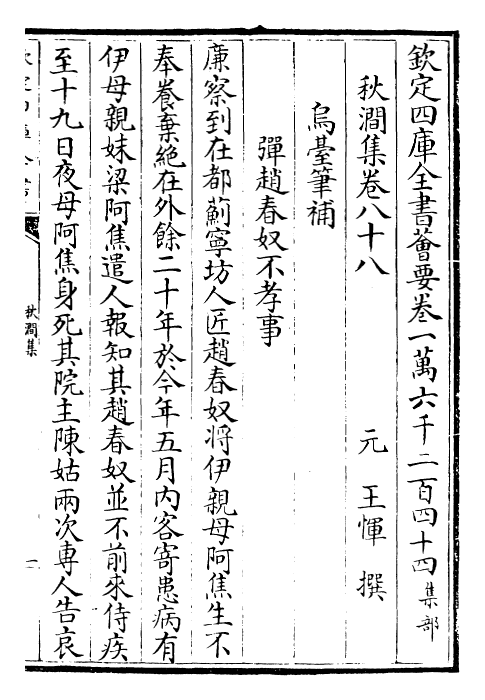 欽定四庫全書薈要卷一萬六千二百四十四集部
秋澗集卷八十八
元 王惲 撰
烏臺筆補
彈趙春奴不孝事
廉察到在都薊寧坊人匠趙春奴將伊親母阿焦生不
奉養棄絶在外餘二十年於今年五月内客寄患病有
伊母親妹梁阿焦遣人報知其趙春奴並不前來侍疾
至十九日夜母阿焦身死其院主陳姑兩次専人告哀
秋澗集
一